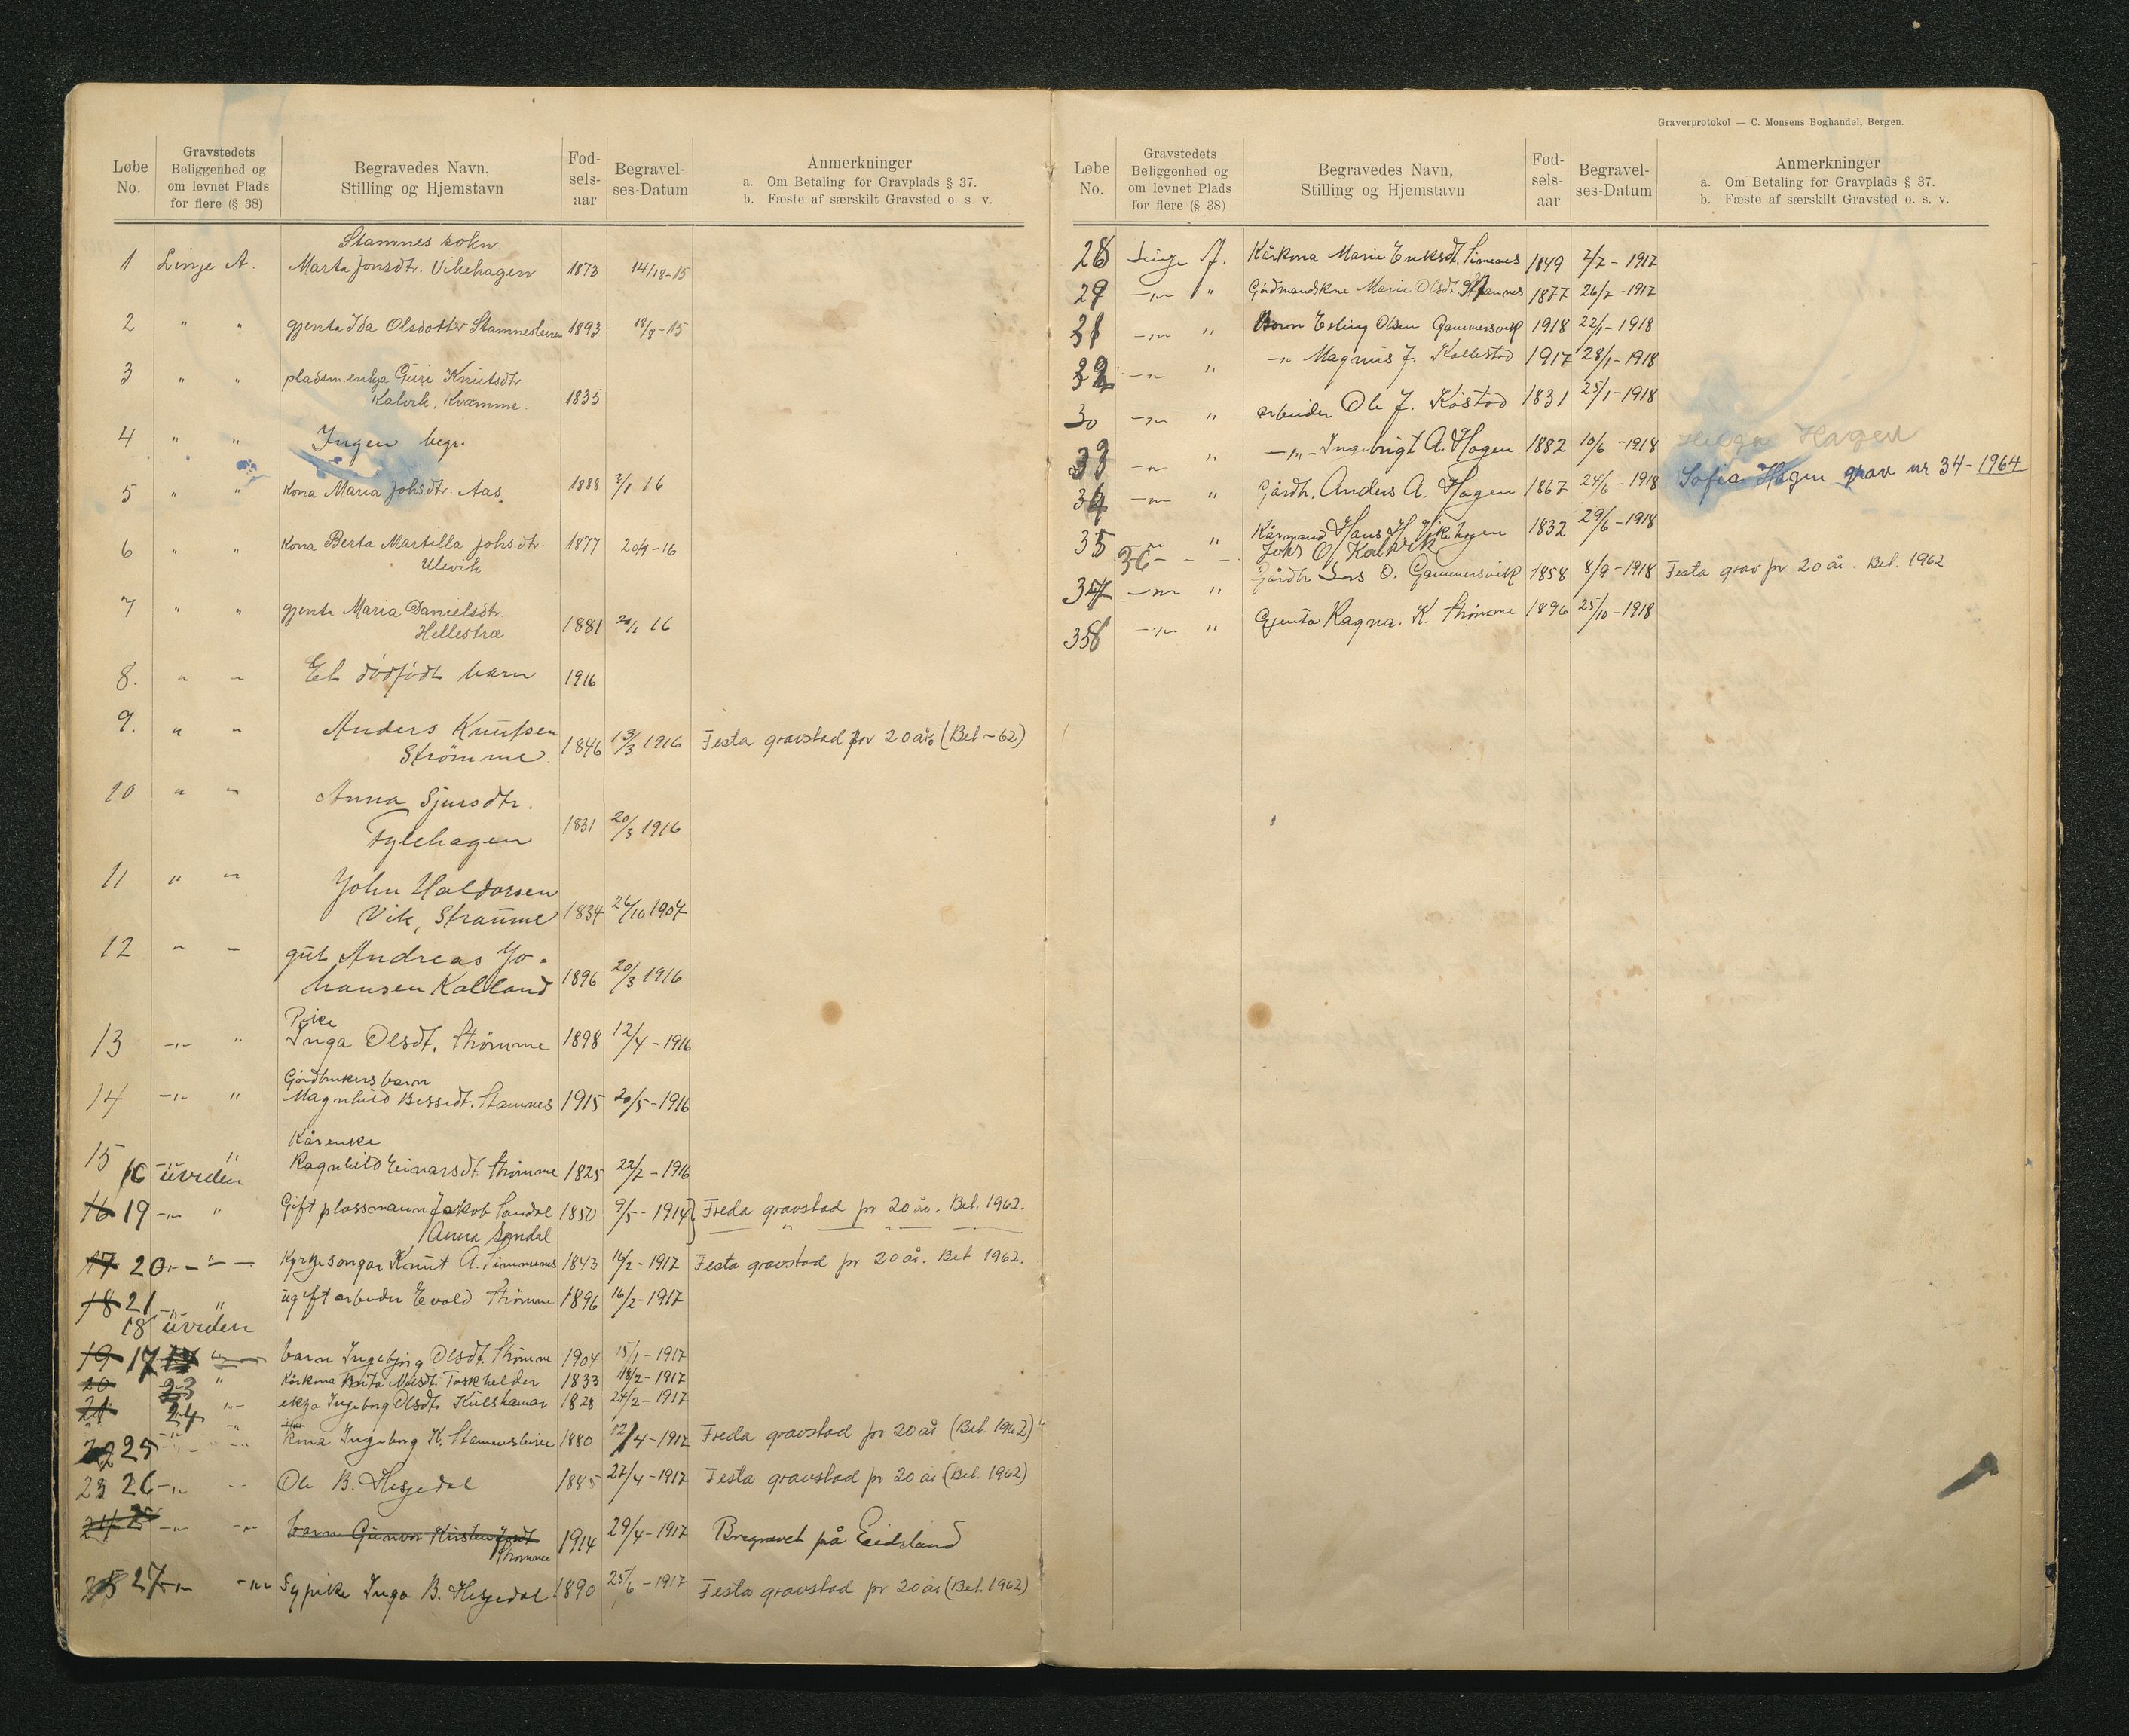 Løbe No.
Gravstedets Beliggenhed og om levnet Plads for flere (§ 38)
Begravedes Navn, Stilling og Hjemstavn
Fød-sels-aar
Begravel-ses-Datum
Anmerkninger
a. Om Betaling for Gravplads § 37.
b. Fæste af særskilt Gravsted o. s. v.
Stamnes sokn.
1 Linje A. Marta Jonsdtr. Vikehagen 1873 14/18-15
2 " " gjenta Ida Olsdotter Stamnesleiren 1893 18/8-15
3 " " pladsm enkja Guri Knutsdtr
Kalvik, Kvamme. 1835
4 " " Ingen begr.
5 " " Kona Maria Johsdtr. Aas. 1888 3/1 16
6 " " Kona Berta Martilla Johs.dtr. 1877 20/1-16
Ulevik
7 " " gjenta Maria Danielsdtr.
Hellestræ 1881 16
8. " " Et dödfödt barn 1916
9. " " Anders Knutsen
Strömme 1846 13/3 1916 Festa gravstad for 20 år (Bet-62)
10 " " Anna Sjursdtr.
Fylehagen 1831 20/3 1916
11 " " John Haldorsen
Vik, Straume 1834 26/10 1907
12 " " gut Andreas Jo-
hansen Kalland 1896 20/3 1916
Pike
13 -"- " Inga Olsdt. Strömme 1898 12/4-1916
Gårdbrukers barn
14 -"- " Magnhild Stamnes 1915 20/5-1916
Kårenke
15 -"- " Ragnhild Einarsdt. Strömme 1825 22/7-1916
16 üvreden
16 19 -"- " Gift plassmann Jakob Sandal 1850 9/5-1914 Freda gravstad pr 20 år. Bet. 1962.
Anna Sandal
17 20 -"- Kyrkjesongar Knut A. 1843 16/2-1917 Festa gravstad pr 20 år. Bet 1962.
18 21 -"- " ugift arbeider Evald Strömme 1896 16/2-1917
18 üvreden
19 17 barn Ingebjörg Olsdt. Strömme 1904 15/1-1917
20 23 " Kårkona Brita Nilsdt. 1833 18/2-1917
21 24 " ekja Ingeborg Olsdt. 1828 24/2-1917
22 25 Kona Ingeborg K. Stamnesleiren 1880 12/4-1917 Freda gravstad pr 20 år (Bet. 1962)
23 26 -"- Ole B. Hesjedal 1885 27/4-1917 Festa gravstad pr 20 år (Bet. 1962)
24 25 -"- -"- barn Gunvor Kirsten
Strömme 1914 29/4-1917 Bregravet på Eidsland
25 27 -"- -"- Sypike Inga B. Hesjedal 1890 25/6-1917 Festa gravstad pr 20 år (Bet. 1962)
Graverprotokol — C. Monsens Boghandel, Bergen.
Løbe No.
Gravstedets Beliggenhed og om levnet Plads for flere (§ 38)
Begravedes Navn, Stilling og Hjemstavn
Fød-sels-aar
Begravel-ses-Datum
Anmerkninger
a. Om Betaling for Gravplads § 37.
b. Fæste af særskilt Gravsted o. s. v.
28 Linje A. Kårkona Marie Eriksdt. 1849 2/7-1917
29 -"- " Gårdmandskone Marie Olsdt. Stamnes 1877 26/7-1917
31 -"- " Barn Erling Olsen Gammersvik 1918 22/1-1918
32 -"- " -"- Magnus J. Kallestad 1917 28/1-1918
30 -"- " arbeider Ole J. Kåstad 1831 25/1-1918
33 -"- " -"- Ingebrigt A. Hagen 1882 10/6-1918 Helga Hagen
34 -"- " Gårdbr. Anders A. Hagen 1867 24/6-1918 Sofia Hagen grav nr 34-1964
35 -"- " Kårmand Hans H. Vikehagen 1832 29/6-1918
36 - - - Johs O. Kalvik
37 -"- " Gårdbr Lars O. Gammersvik 1858 8/9-1918 Festa grav pr 20 år. Bet. 1962
38 -"- " Gjenta Ragna. K. Strömme 1896 25/10-1918